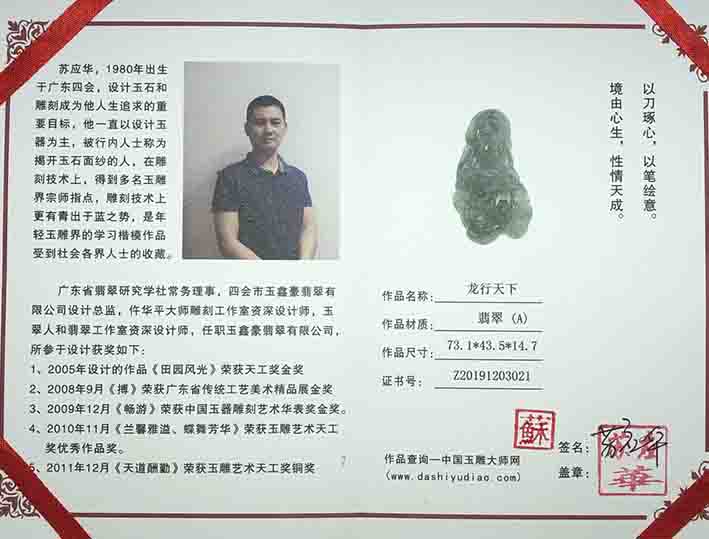 苏应华，1980年出生
于广东四会，设计玉石和
雕刻成为他人生追求的重
要目标，他一直以设计玉
器为主，被行内人士称为
揭开玉石面纱的人，在雕
刻技术上，得到多名玉雕
界宗师指点，雕刻技术上
更有青出于蓝之势，是年
轻玉雕界的学习楷模作品
受到社会各界人士的收藏。
广东省翡翠研究学社常务理事，四会市玉鑫豪翡翠有
限公司设计总监，仵华平大师雕刻工作室资深设计师，玉
翠人和翡翠工作室资深设计师，任职玉鑫豪翡翠有限公司，
所参于设计获奖如下：
1、2005年设计的作品《田园风光》荣获天工奖金奖
2、2008年9月《搏》荣获广东省传统工艺美术精品展金奖
3、2009年12月《畅游》荣获中国玉器雕刻艺术华表奖金奖。
4、2010年11月《兰馨雅溢、蝶舞芳华》荣获玉雕艺术天工
奖优秀作品奖。
5、2011年12月《天道酬勤》荣获玉雕艺术天工奖铜奖
以刀琢心，以笔绘意。
境由心生，性情天成。
作品名称：龙行天下
作品材质：翡翠 (A)
作品尺寸：73.1*43.5*14.7
证书号：Z20191203021
作品查询一中国玉雕大师网
(www.dashiyudiao.com)
蘇
签名：
盖章：
華